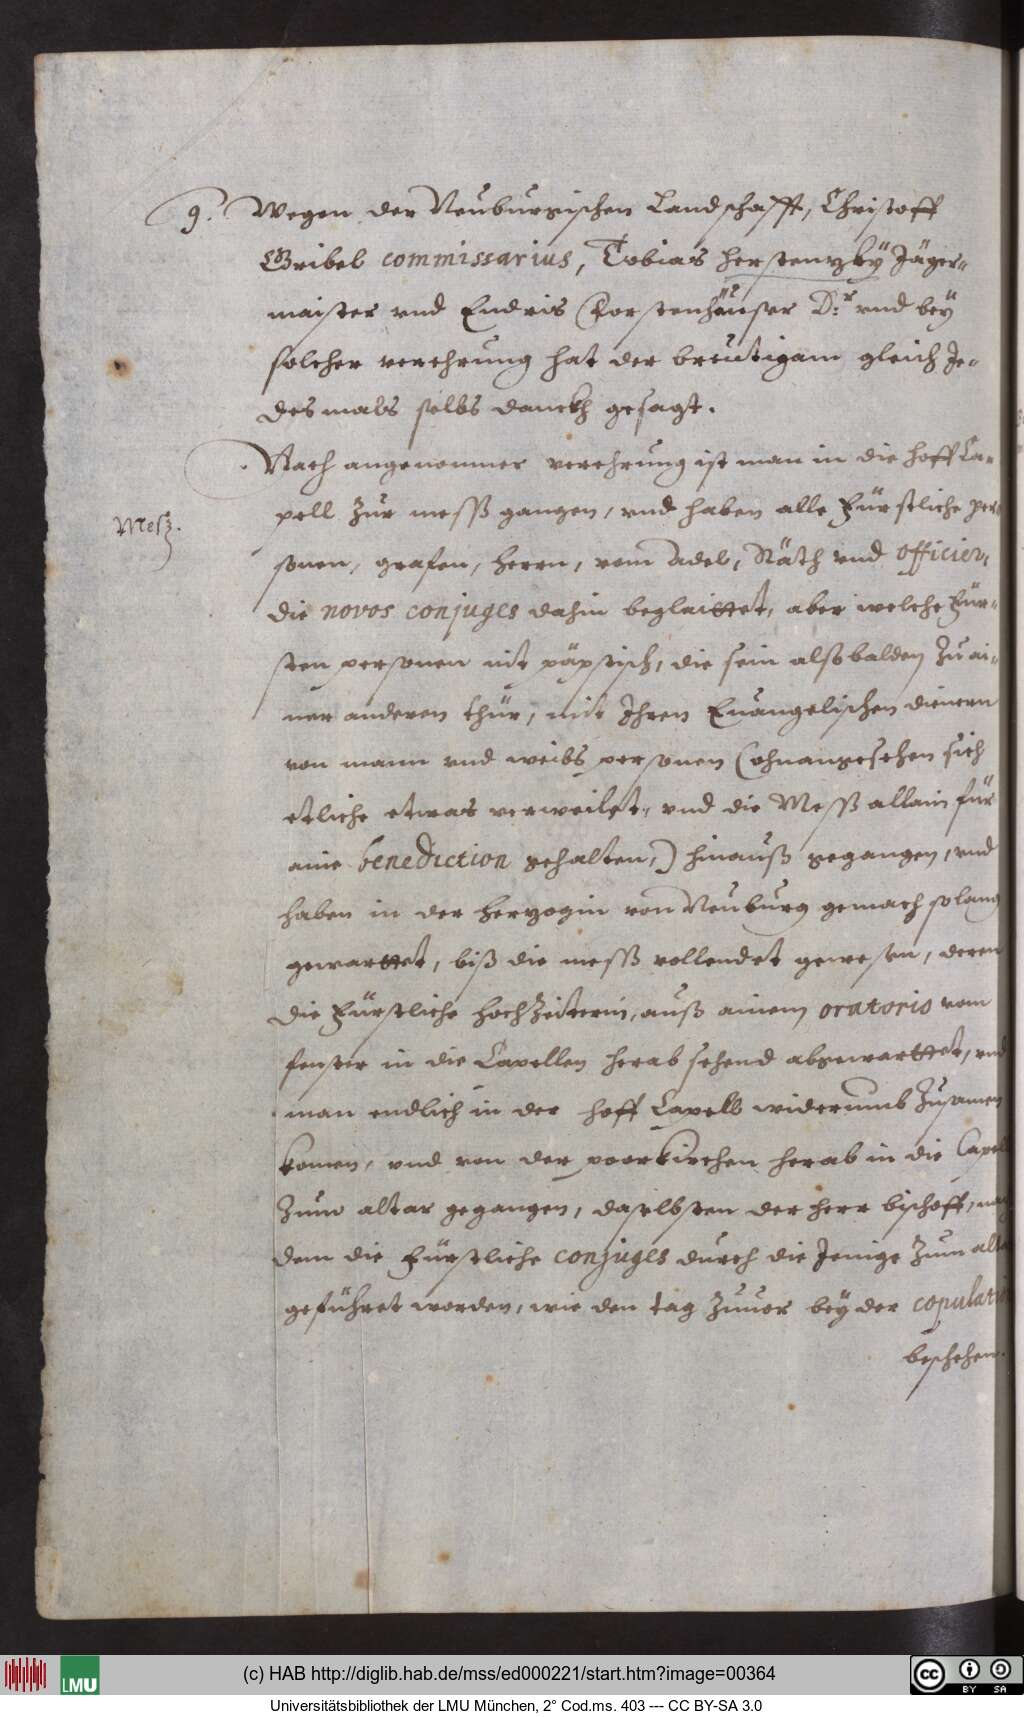 9. Wegen der Neuburgischen Landschafft, Christoff
Gribel commissarius, Tobias herstenzky Jäger-
maister vnd Endris Forstenhäuser D:r vnd bey
solcher verehrung hat der breutigam gleich Je-
desmals selbs danckh gesagt.
Nach angenommer verehrung ist man in die hoff Ca-
pell zur mess gangen, vnd haben alle Fürstliche per-
Mesz.
sonen, grafen, herrn, vom Adel, Räth vnd officier,
die novos conjuges dahin beglaittet, aber welche Für-
sten personen nit päpstisch, die sein alsobalden zu ai-
ner anderen thür, mit Ihren Euangelischen dienern
von mann vnd weibs personen (ohnangesehen sich
etliche etwas verweilet, vnd die Mess allain für
aine benediction gehalten,) hinauß gegangen, vnd
haben in der herzogin von Neuburg gemach so lang
gewarttet, biß die mess vollendet gewesen, deren
die Fürstliche hochzeiterin, auß ainem oratorio vom
fenster in die Capellen herab sehend abgewarttet, vnd
man endlich in der hoff Capell widerumb zusamen
komen, vnd von der poorkirchen herab in die Capell
zum altar gegangen, daselbsten der herr bischoff,
dem die Fürstliche conjuges durch die Jenige zum
geführet worden, wie den tag zuuor bey der
beschehen.
(c) HAB http://diglib.hab.de/mss/ed000221/start.htm?image=00364
LMU
cc BY SA
Universitätsbibliothek der LMU München, 2° Cod.ms. 403 --- CC BY-SA 3.0